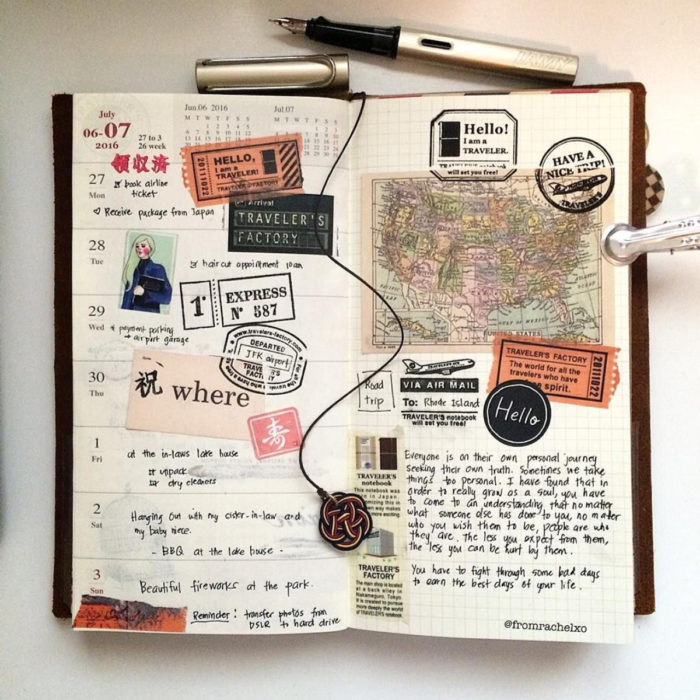 LAMY
July
06-07
2016
27 to 3
26 week
Jun.06 2016
Jul.07
M T W T F S S
M T W T F S S
領収済
HELLO,
I am a
TRAVELER!
TRAVELER'S FACTORY
20111022
27
Mon
book airline
ticket
Receive package from Japan
Arrival
TRAVELER'S
FACTORY
28
Tue
hair cut appointment 10am
1
EXPRESS
Nº 587
29
Wed
payment parking
→ airport garage
www.travelers-factory.com
DEPARTED
JFK airport
30
Thu
祝 where
寿
1
Fri
at the in-laws lake house
unpack
dry cleaners
2
Sat
Hanging out with my sister-in-law and
my baby niece.
- BBQ at the lake house -
3
Sun
Beautiful fireworks at the park.
Reminder: transfer photos from
DSLR to hard drive
Hello!
I am a
TRAVELER.
will set you free!
HAVE A
NICE TRIP!
ATLANTIC
GULF OF MEXICO
UNITED STATES
TRAVELER'S FACTORY
The world for all the
travelers who have
spirit.
20111022
Road
trip
VIA AIR MAIL
To: Rhode Island
TRAVELER'S notebook
will set you free!
Hello
TRAVELER'S
notebook
This notebook was
TRAVELER'S
FACTORY
The main shop is located
at a back alley in
Nakameguro, Tokyo.
It is created to pursue
more deeply the world
of TRAVELER'S notebook
Everyone is on their own personal journey
seeking their own truth. Sometimes we take
things too personal. I have found that in
order to really grow as a soul, you have
to come to an understanding that no matter
what someone else has done to you, no matter
who you wish them to be, people are who
they are. The less you expect from them,
the less you can be hurt by them.
You have to fight through some bad days
to earn the best days of your life.
@fromrachelxo